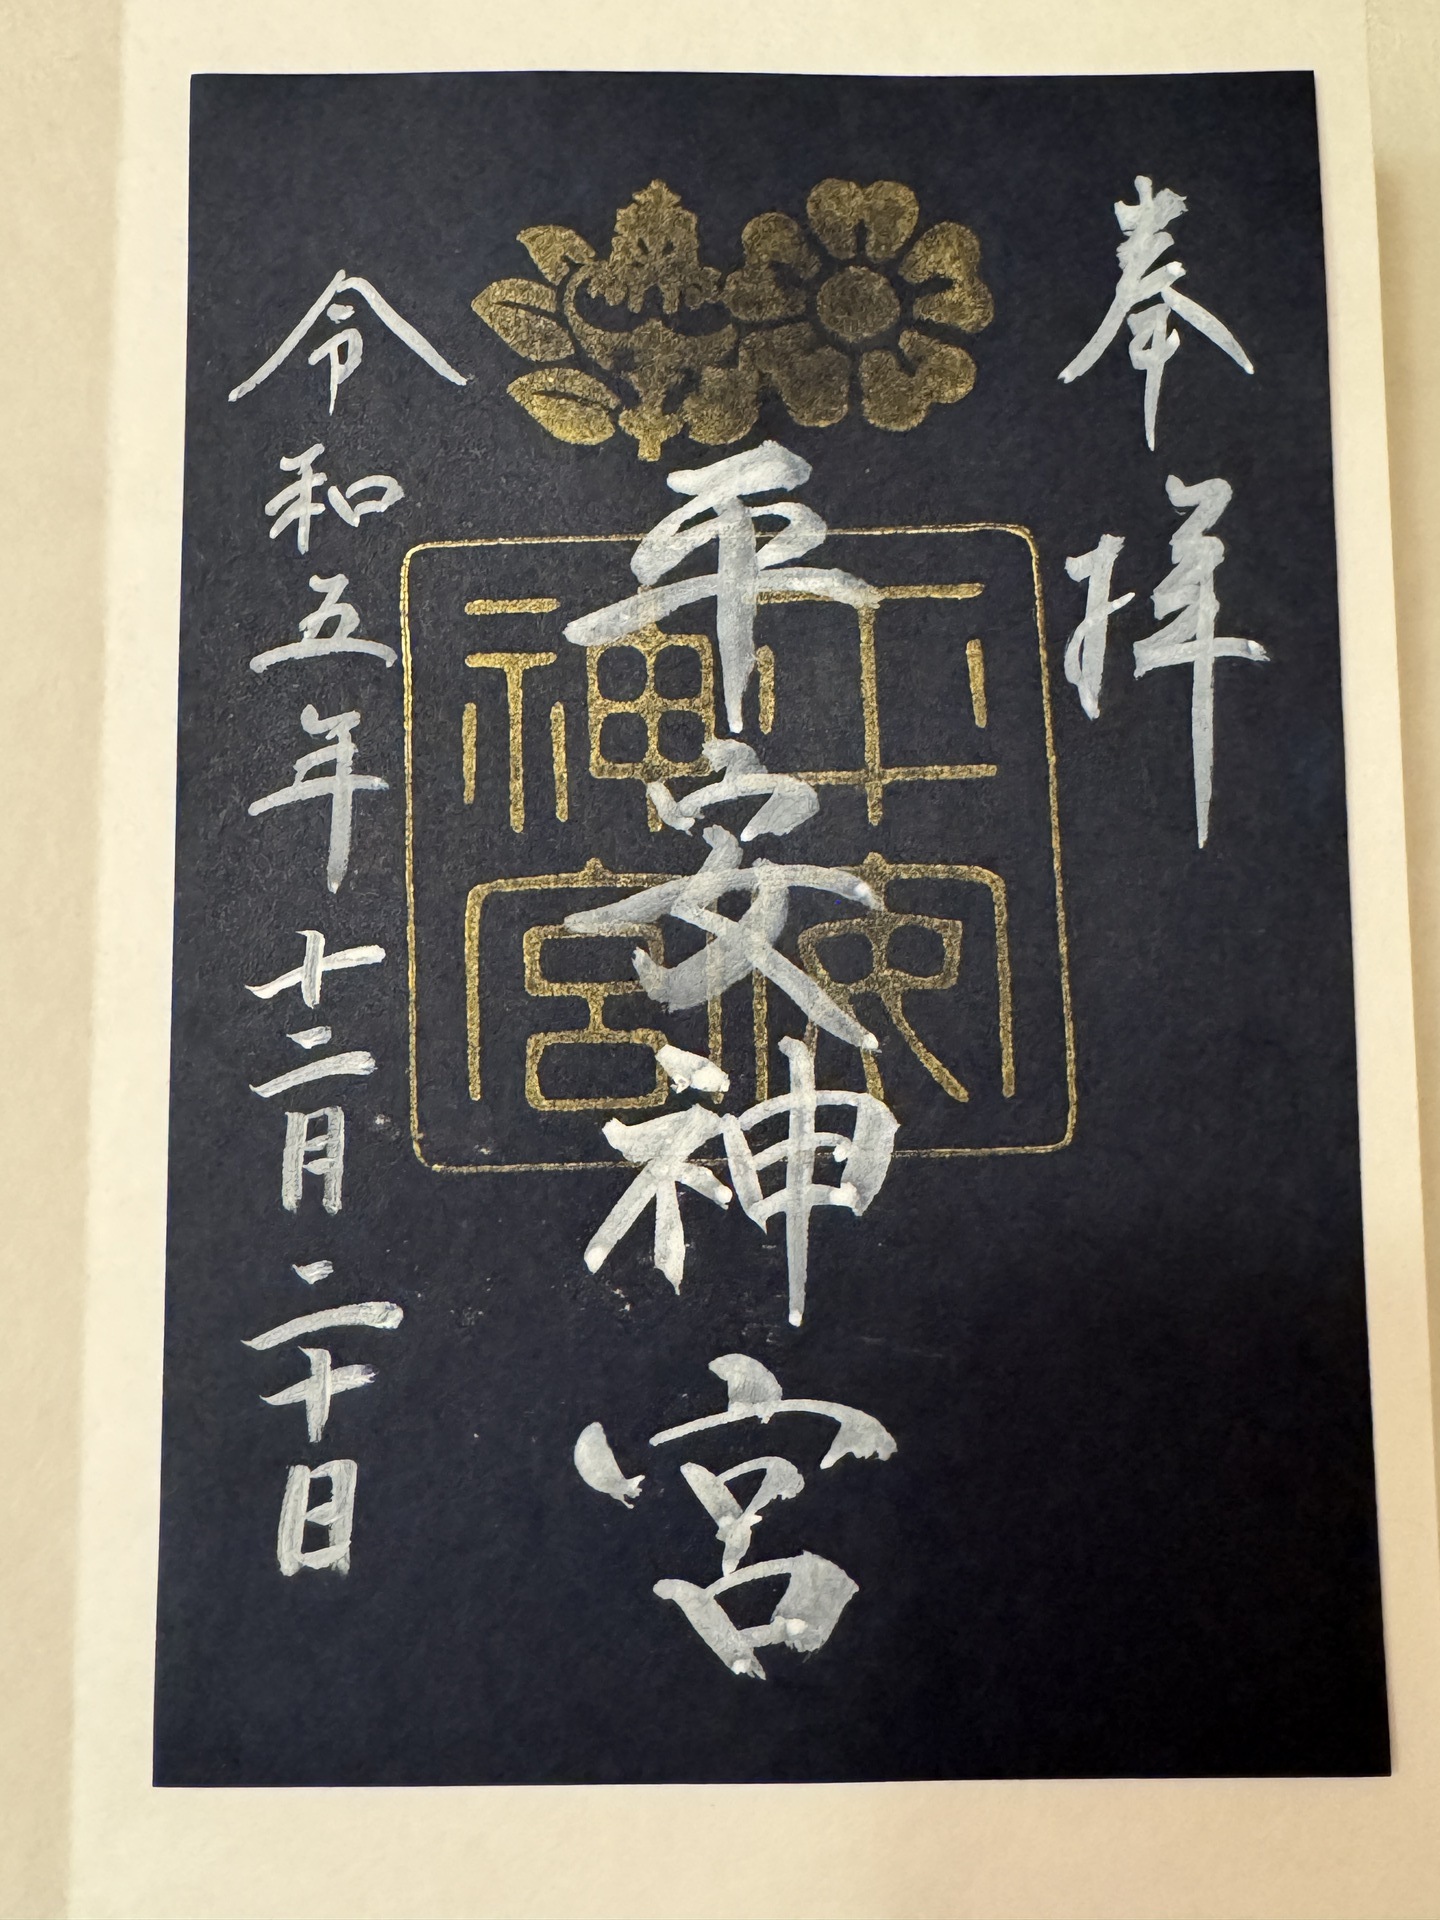 奉拝
平安神宮
平安神宮
令和五年十二月二十日